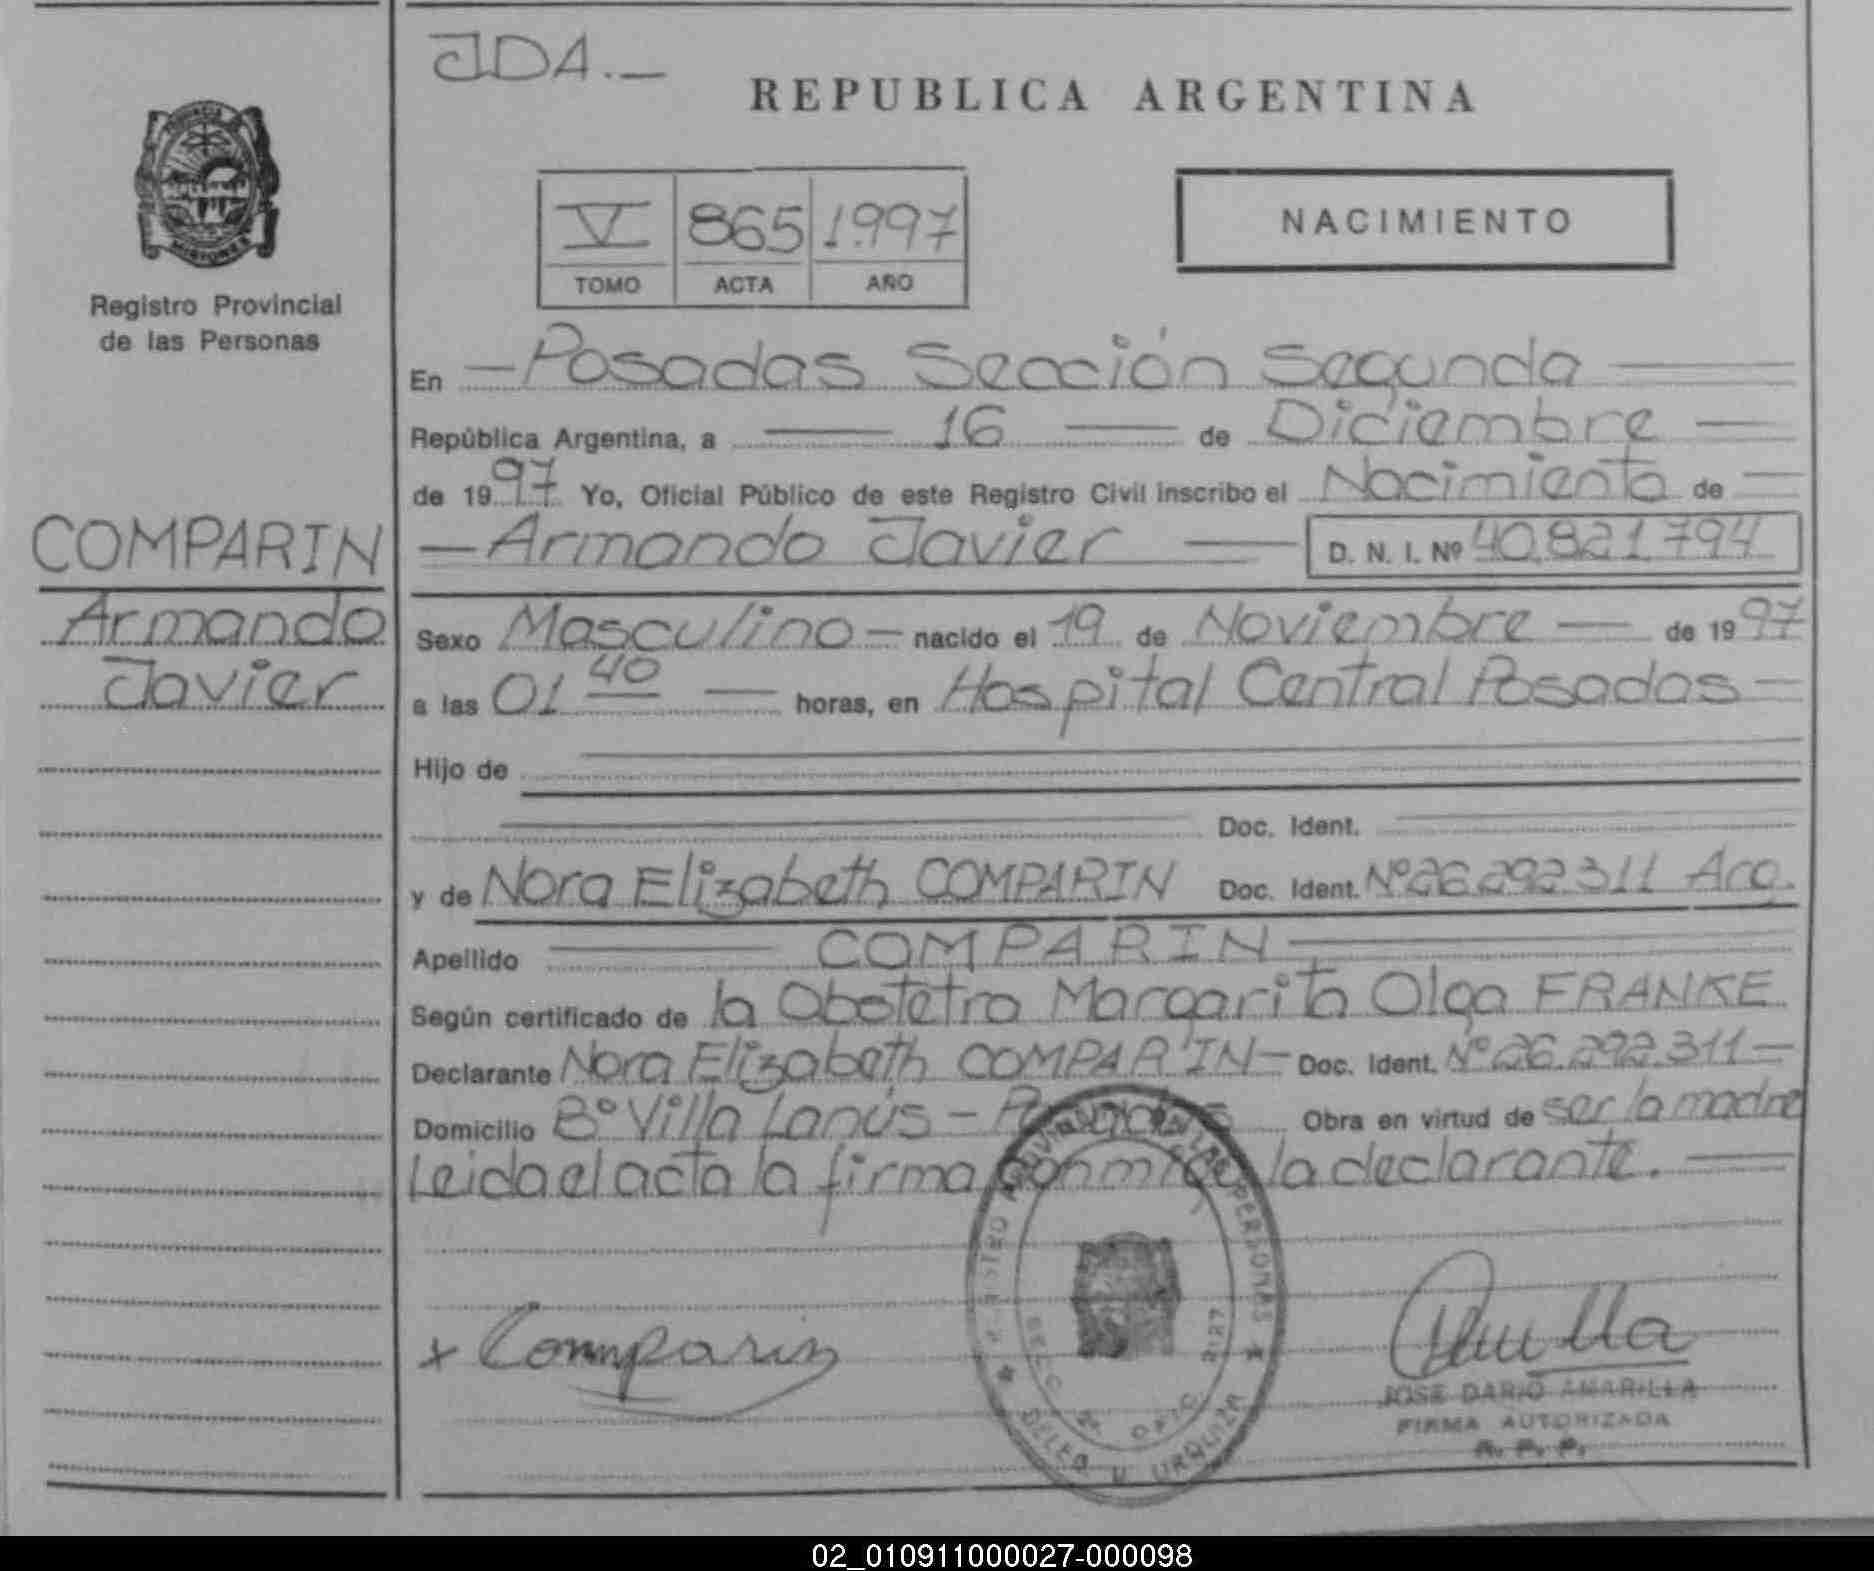 JDA.-
REPUBLICA ARGENTINA
V 865 1.997
TOMO ACTA AÑO
NACIMIENTO
Registro Provincial
de las Personas
COMPARIN
Armando
Javier
En - Posadas Sección Segunda
República Argentina, a 16 de Diciembre
de 1997 Yo, Oficial Público de este Registro Civil inscribo el Nacimiento de
- Armando Javier - D. N. I. Nº 40.821.794
Sexo Masculino - nacido el 19 de Noviembre - de 1997
a las 01 40 - horas, en Hospital Central Posadas -
Hijo de
Doc. Ident.
y de Nora Elizabeth COMPARIN Doc. Ident. Nº 26.292.311 Arg.
Apellido COMPARIN
Según certificado de la Obstetra Margarita Olga FRANKE
Declarante Nora Elizabeth COMPARIN - Doc. Ident. Nº 26.292.311 -
Domicilio Bº Villa Lanús - Posadas Obra en virtud de ser la madre
Leida el acta la firma conmigo la declarante. -
x Comparin
DELEG V URQUIZA
JOSE DARIO AMARILLA
FIRMA AUTORIZADA
R. P. P.
02_010911000027-000098